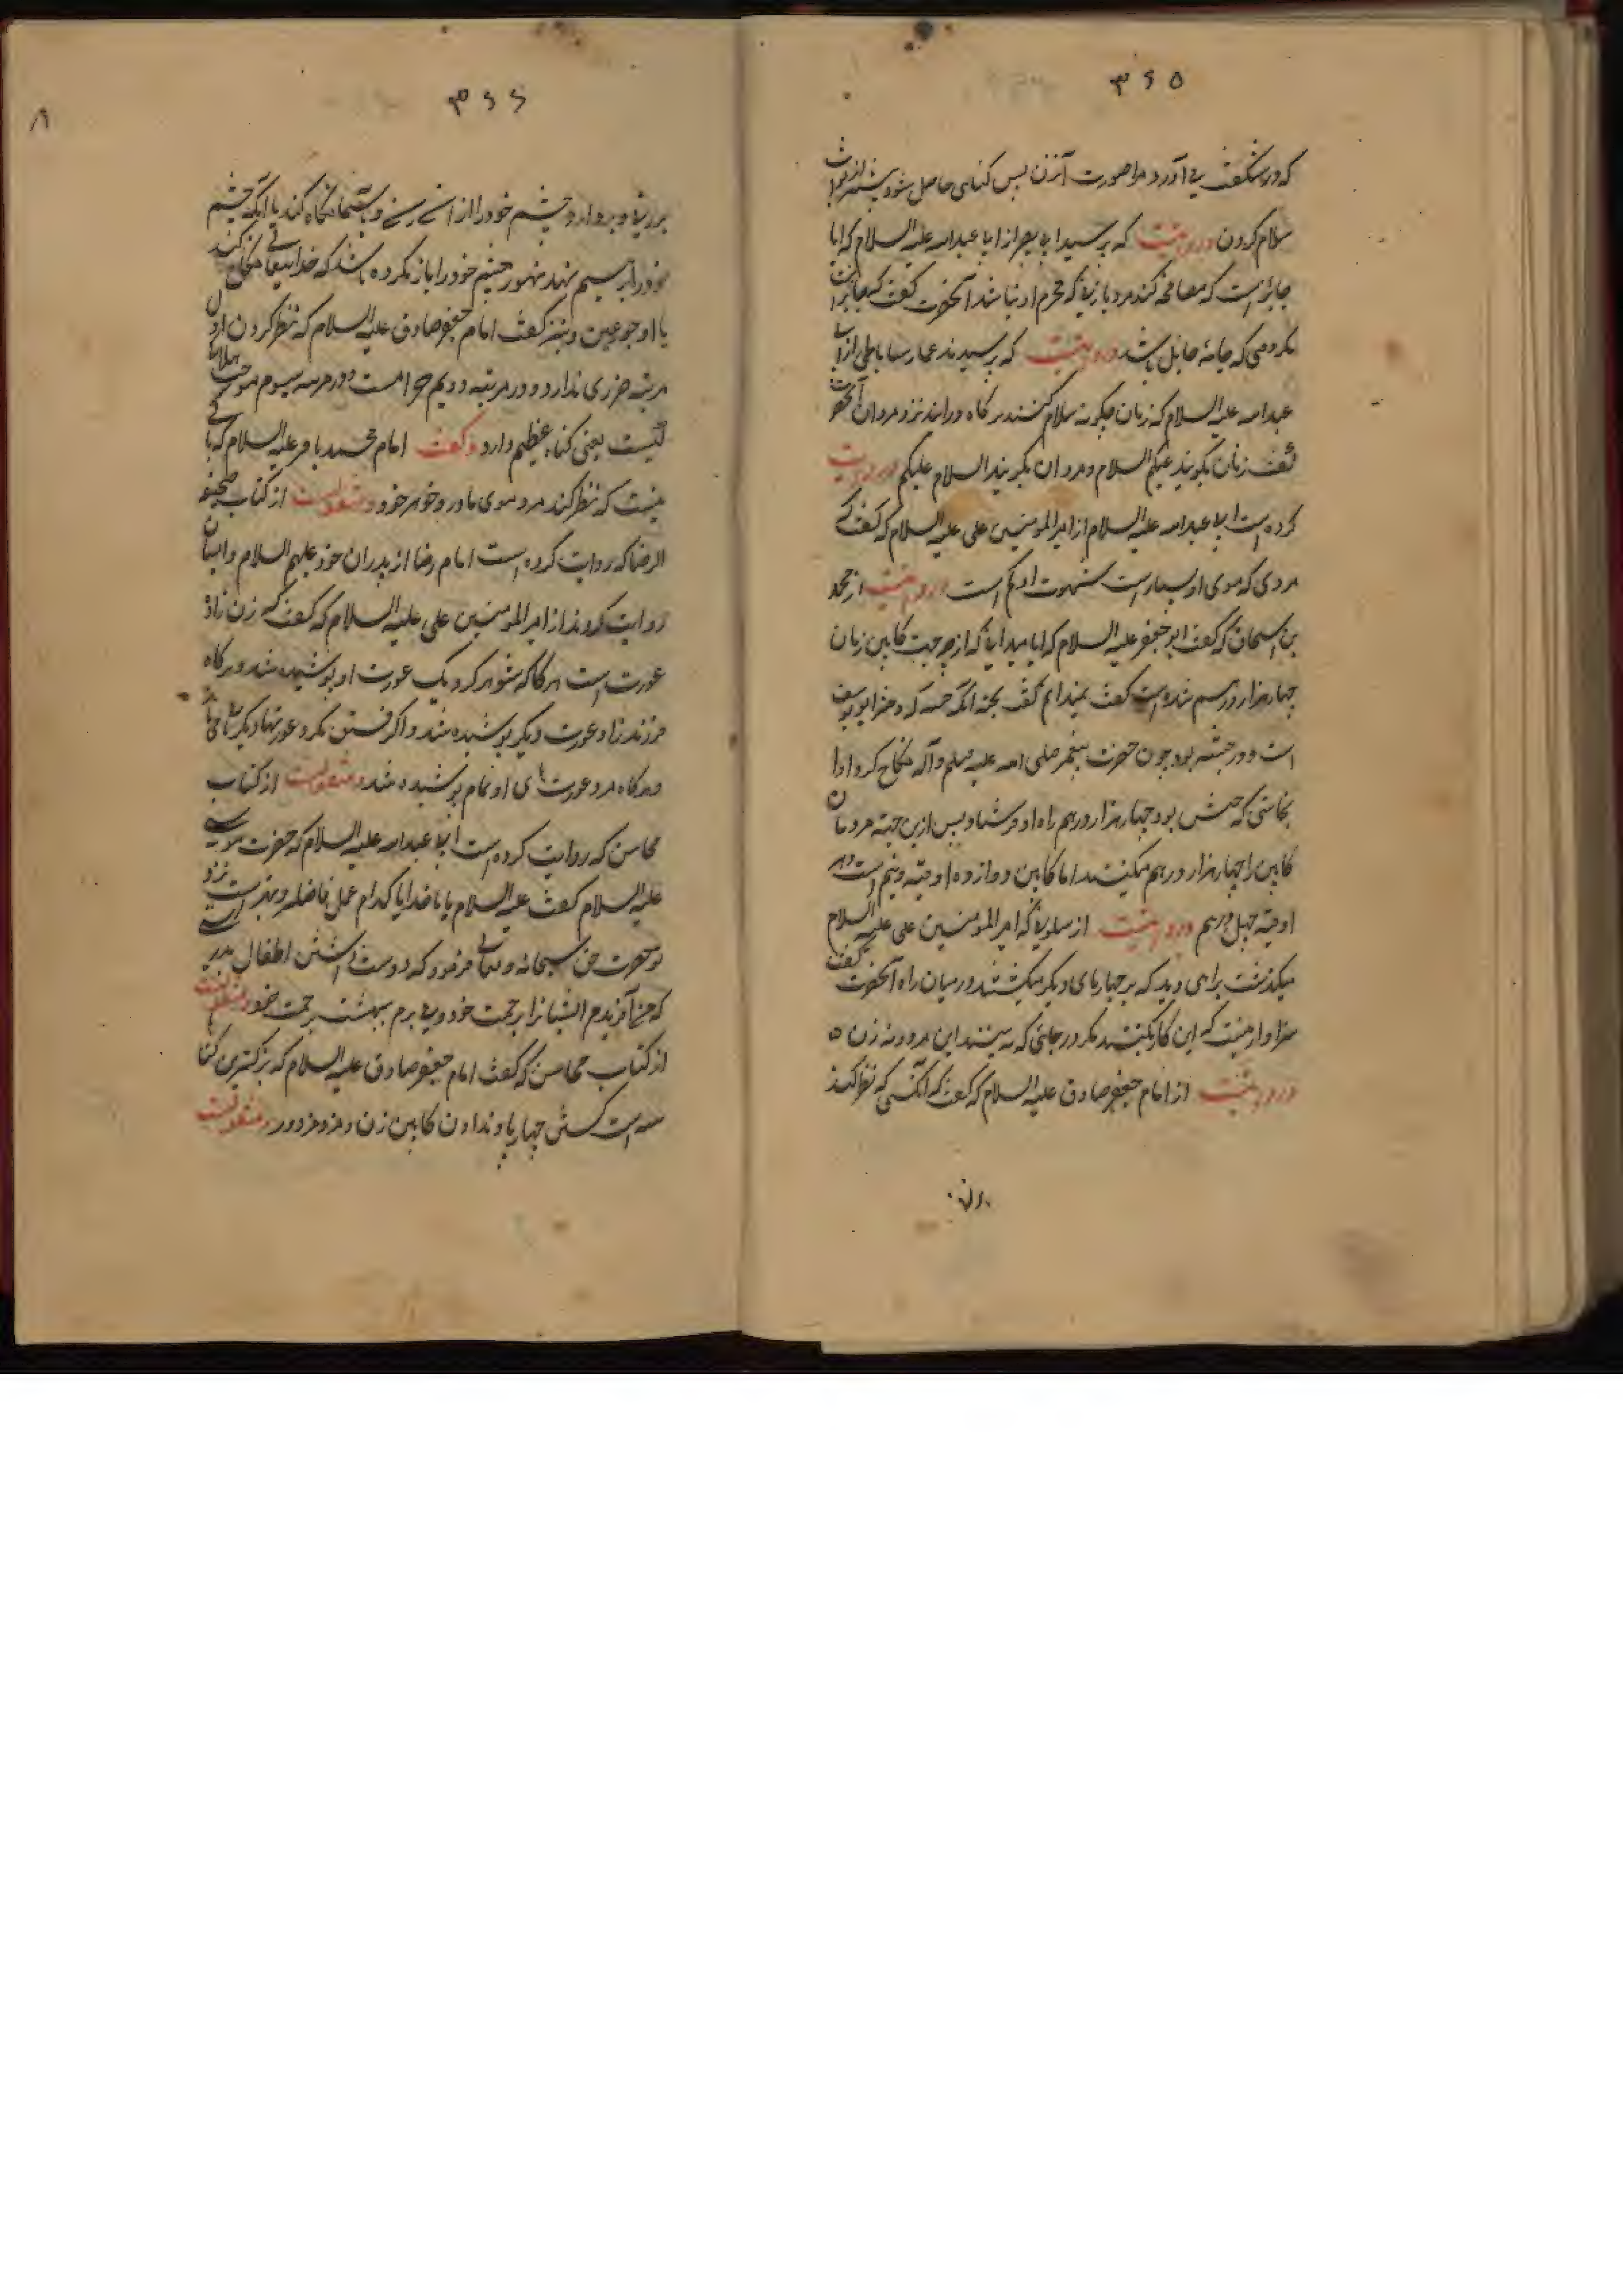 ۳۶۵
که در شگفت می آورد مرا صورت آنزن پس گناهی حاصل شود بیشتر از ثواب
سلام کردن و روایتست که پرسید ابا بصیر از ابا عبدالله علیه السلام که ایا
جایز است که مصافحه کند مرد با زنی که محرم او نباشد آنحضرت گفت که جایز نیست
مگر وقتی که جامهٔ حایل باشد و روایتست که پرسیدند عمار ساباطی از ابا
عبدالله علیه السلام که زنان چگونه سلام کنند هر گاه درایند نزد مردان آنحضرت
گفت زنان بگویند علیکم السلام و مردان بگویند السلام علیکم و روایت
کرده است ابا عبدالله علیه السلام از امیر المومنین علی علیه السلام که گفت که
مردی که موی او بسیار است شهوت او کم است و روایتست از محمد
بن اسحاق که گفت ابو جعفر علیه السلام که ایا میدانی که از چه جهت کابین زنان
چهار هزار درهم شده است گفت نمیدانم گفت بجهة انکه
است در حبشه بود چون حضرت پیغمبر صلی الله علیه و آله نکاح کرد او را
نجاشی که حبش بود چهار هزار درهم راه او فرستاد پس ازین جهة مردمان
کابین را چهار هزار درهم میکنند اما کابین دوازده اوقیه و نیم است و هر
اوقیه چهل درهم و روایتست از که امیر المومنین علی علیه السلام
میگذشت براهی دید که بر چهارپای دیگر میکشند در میان راه آنحضرت گفت
سزاوار نیست که این کار بکنند مگر در جائی که نه بینند این مرد و نه زن
و روایتست از امام جعفر صادق علیه السلام که گفت که آنکسی که نظر کند
۳۶۶
بر زنی و بردارد چشم خود را از و باسمان نگاه کند یا انکه چشم
خود را بر هم نهد هنوز چشم خود را باز نکرده باشد که خدایتعالی نکاح کند
با او حور عین و نیز گفت امام جعفر صادق علیه السلام که نظر کردن اول
مرتبه ضرری ندارد و در مرتبه دویم حرامست و در مرتبه سیوم موجب هلاک
نیست یعنی گناه عظیم دارد و گفت امام محمد باقر علیه السلام که باکی
نیست که نظر کند مرد موی مادر و خواهر خود و منقولست از کتاب صحیفه
الرضا که روایت کرده است امام رضا از پدران خود علیهم السلام و ایشان
روایت کردند از امیر المومنین علی علیه السلام که گفت که زن را ده
عورت است هر گاه که شوهر کرد یک عورت او پوشیده شد و هر گاه
فرزند زاد عورت دیگر پوشیده شد
و هر گاه مرد عورتهای او تمام پوشیده شد و منقولست از کتاب
محاسن که روایت کرده است ابا عبدالله علیه السلام که حضرت موسی
علیه السلام گفت یا خدایا کدام عمل فاضلتر و بهتر است نزد
تو حضرت حق سبحانه و تعالی فرمود که دوست داشتن اطفال بدرستی
که من آفریدم ایشانرا برحمت خود و میبرم ببهشت برحمت خود و منقولست
از کتاب محاسن که گفت امام جعفر صادق علیه السلام که بزرگترین گناه
سه است کشتن چهارپا و ندادن کابین زن و مزد مزدور و منقولست